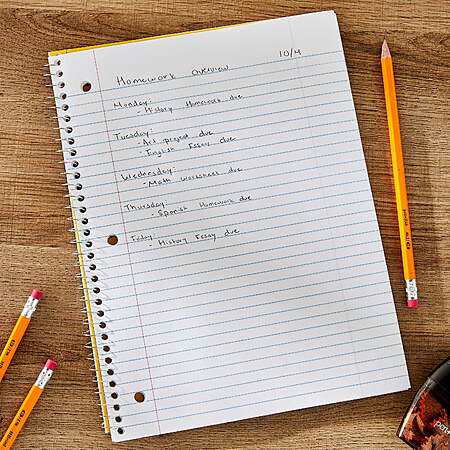 Homework Overview 10/4
Monday:
- History Homework due
Tuesday
- Art project due
- English Essay due
Wednesday:
- Math Worksheet due
Thursday:
- Spanish Homework due
Friday
- History Essay due